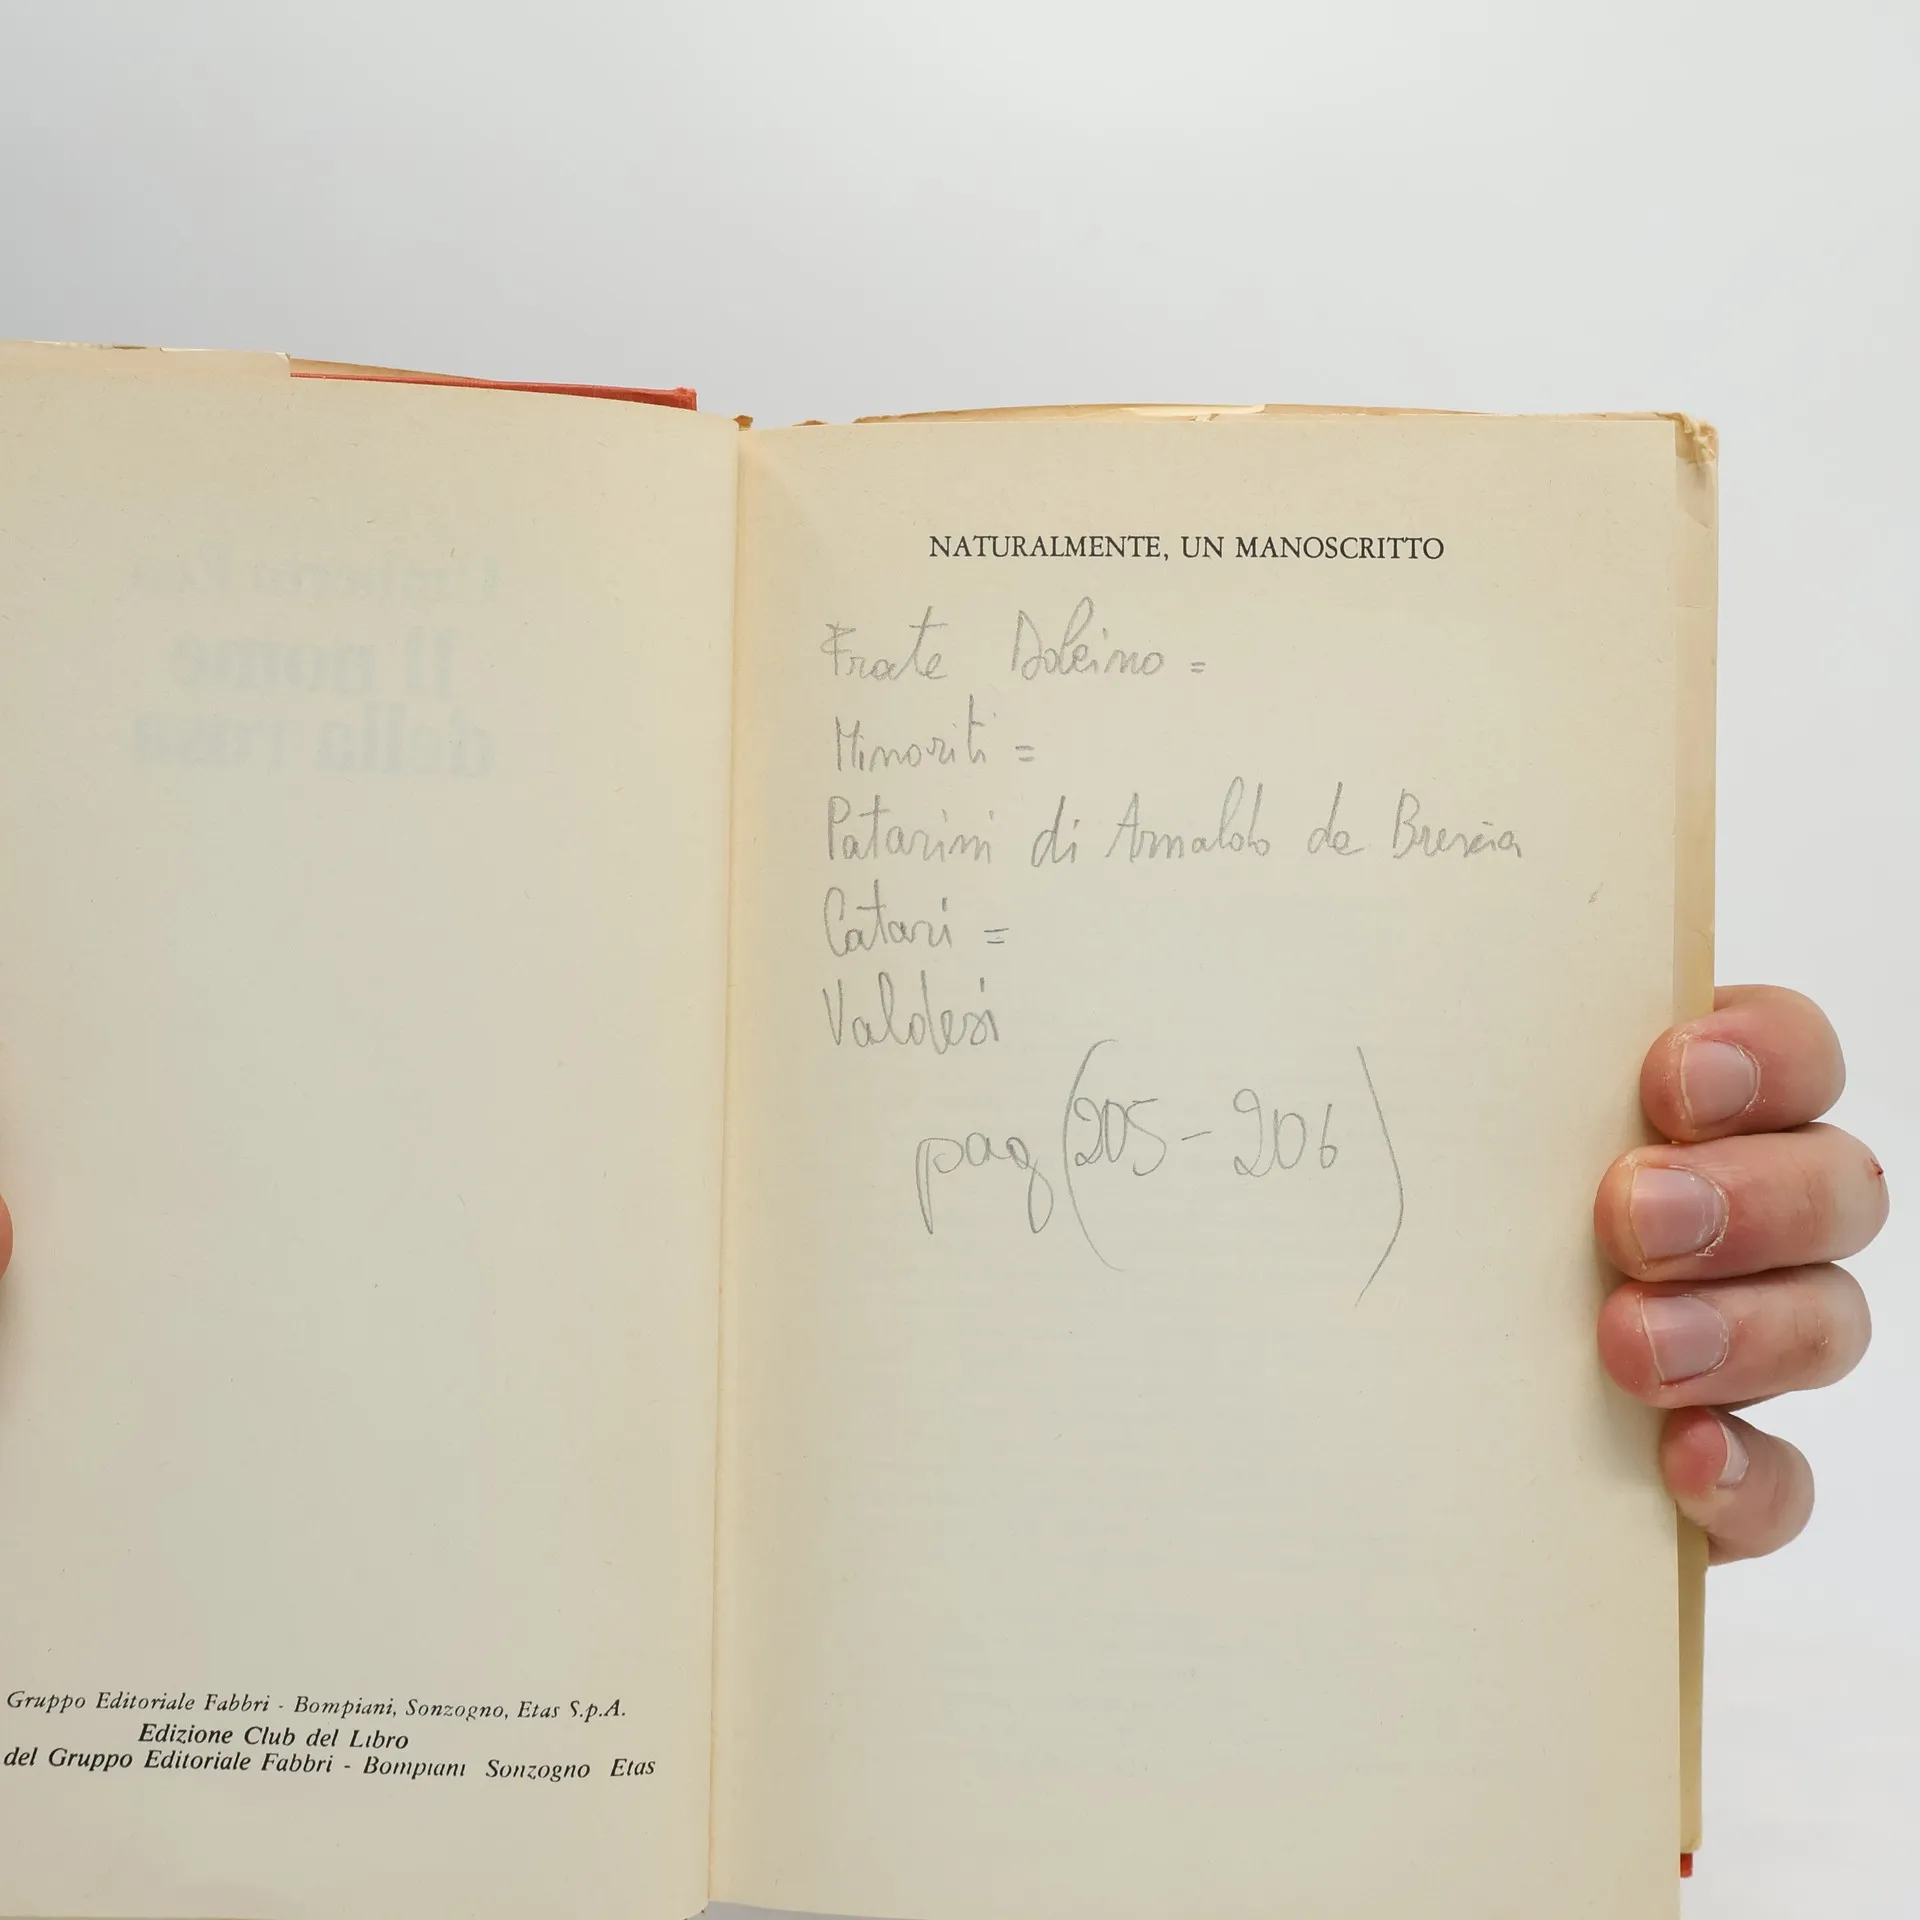 Umberto Eco
Il nome
della rosa
Gruppo Editoriale Fabbri - Bompiani, Sonzogno, Etas S.p.A.
Edizione Club del Libro
del Gruppo Editoriale Fabbri - Bompiani Sonzogno Etas
NATURALMENTE, UN MANOSCRITTO
Frate Dolcino =
Minoriti =
Patarini di Arnaldo da Brescia
Catari =
Valdesi
pag (205 - 206)